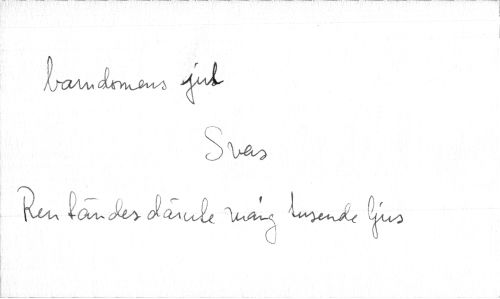 barndomens jul
Svens
Ren tändes därute mång tusende ljus